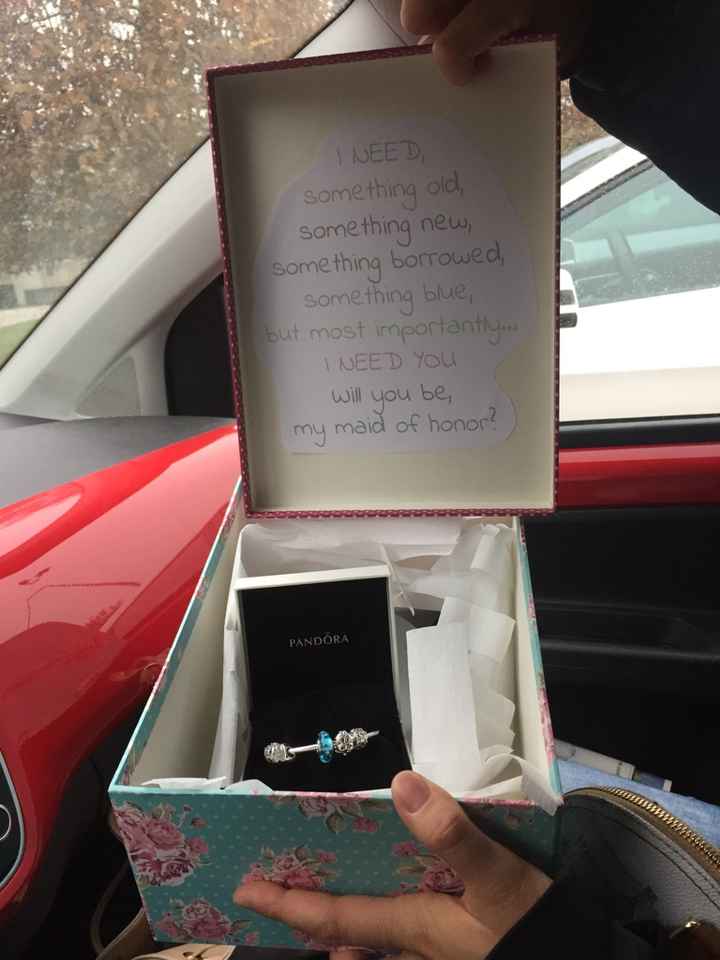 I NEED,
something old,
something new,
something borrowed,
something blue,
but most importantly...
I NEED YOU
will you be,
my maid of honor?
PANDÓRA